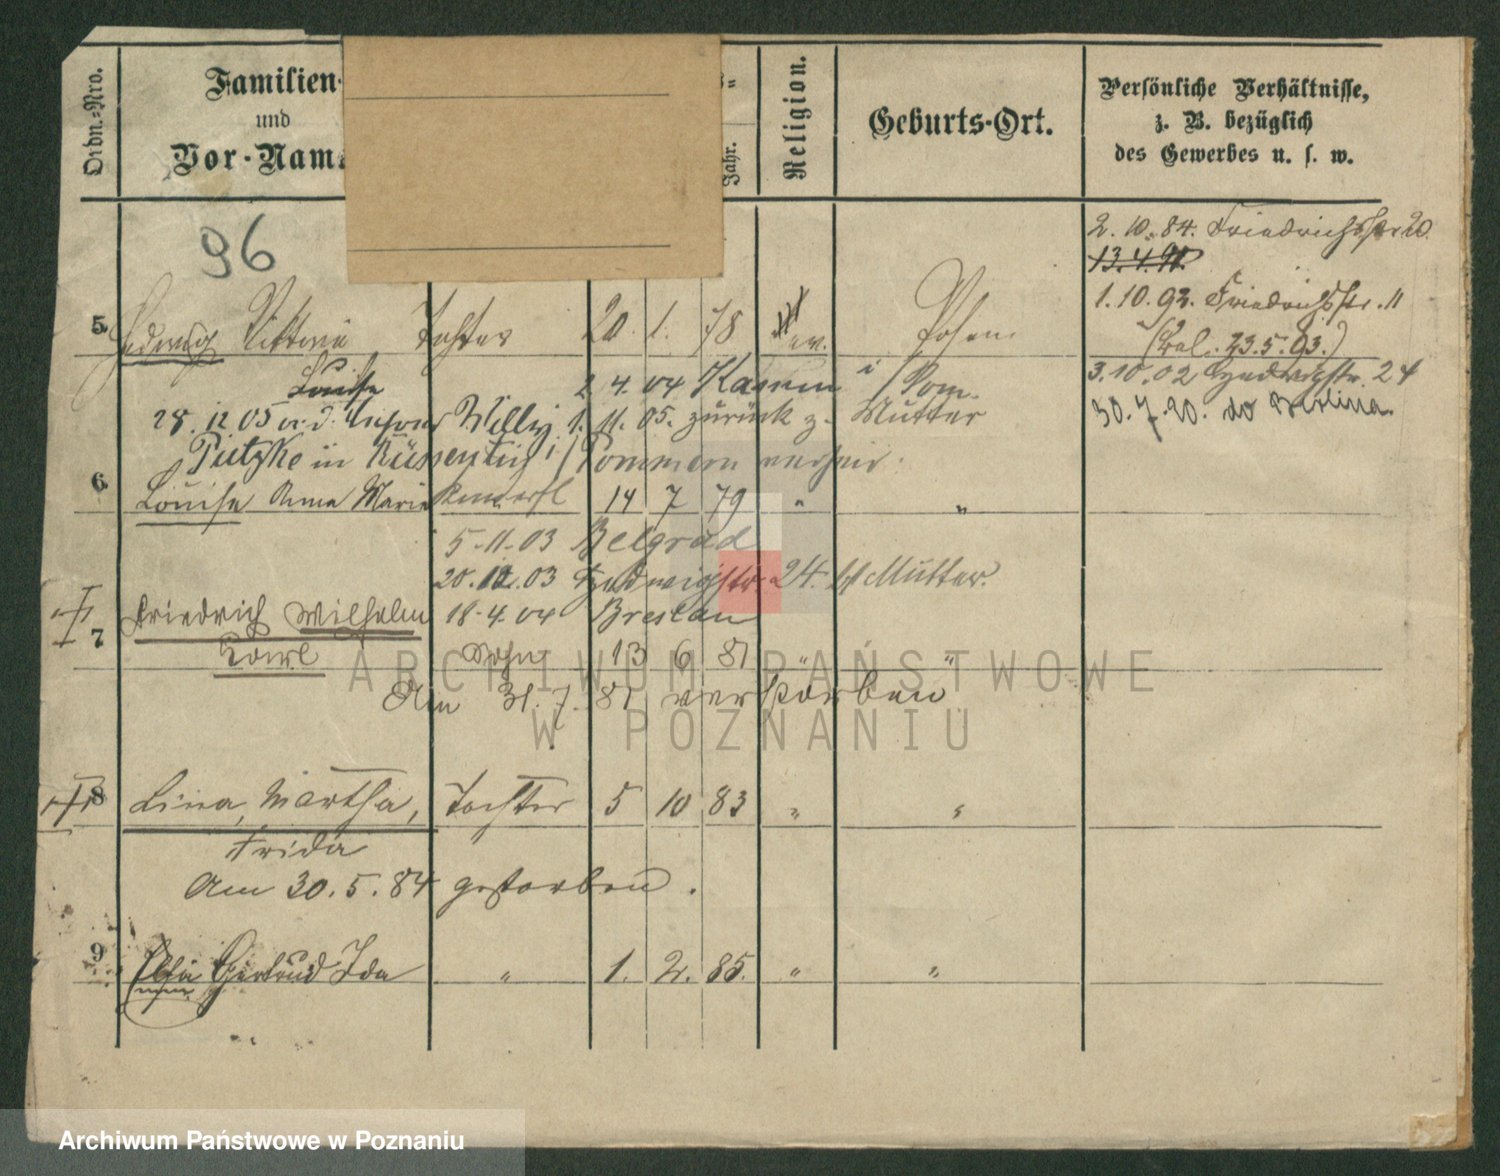 Ordn.-Nro.
Familien-
und
Vor-Name
Jahr.
Religion.
Geburts-Ort.
Persönliche Verhältnisse,
z. B. bezüglich
des Gewerbes u. s. w.
96
2. 10. 84. Friedrichsstr. 20.
13.4.91.
1. 10. 92. Friedrichsstr. 11
5. Hedwig Viktoria Tochter 20. 1. 78 ev. Posen
(Pol. 23.5.93.)
Louise 2. 4. 04 i/Pom.
3. 10. 02 Hedwigstr. 24
28. 12 05 Willy 1. 11. 05. zurück z. Mutter
30. 7. 20.
Putzke in i/Pommern
6. Louise Anna Marie 14 7 79 " "
5.-11-03 Belgrad
20. 12. 03 Hedwigstr. 24. Mutter.
7 Friedrich Wilhelm 18-4.04 Breslau
Karl Sohn 13 6 81 " "
Am 31. 7. 81 verstorben
8 Lina, Martha, Tochter 5 10 83 " "
Frida
Am 30. 5. 84 gestorben.
9 Gertrud Ida " 1. 2. 85. " "
ARCHIWUM PAŃSTWOWE
W POZNANIU
Archiwum Państwowe w Poznaniu